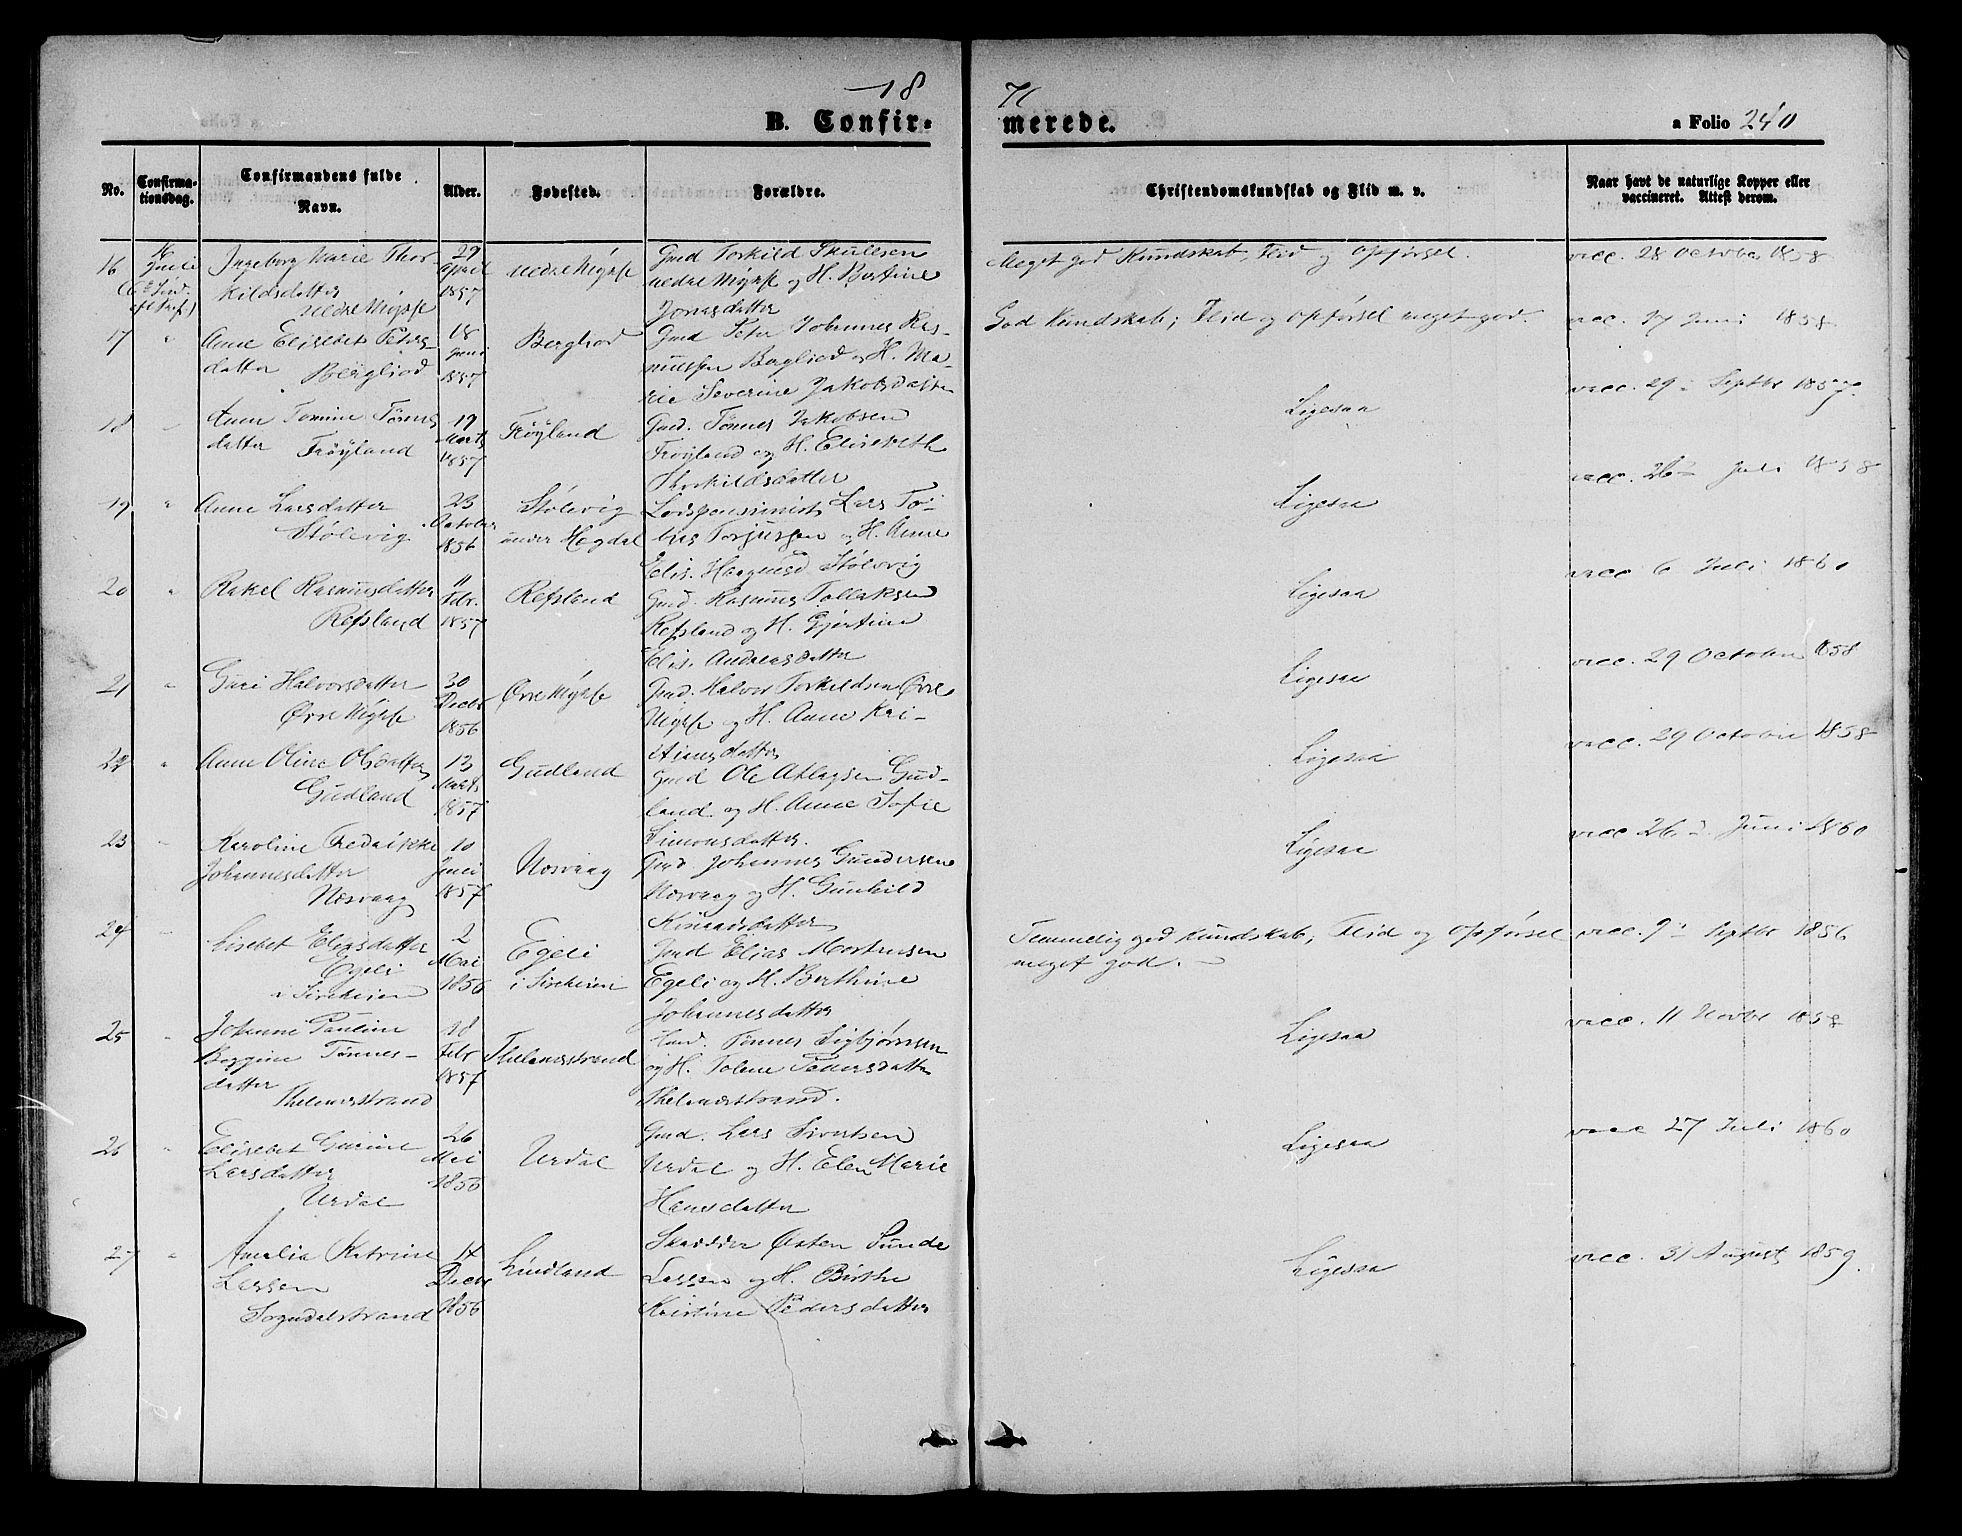 18 71
B. Confir- merede. a Folio 240
No.
Confirma-
tionsdag.
Confirmandens fulde
Navn.
Alder.
Fødested.
Forældre.
Christendomskundskab og Flid m. v.
Naar havt de naturlige Kopper eller
vaccineret. Attest derom.
16
Juli
Ingeborg Marie Thor-
kildsdatter
nedre Mysse
29
April
1857
nedre Mysse
Gmd Torkild Skulesen
nedre Mysse og H. Bertine
Jonasdatter
Meget god Kundskab, Flid og Opførsel.
vacc. 28 October 1858
17 "
Anne Elisebet Peters-
datter Bergliod
18
Juni
1857
Bergliod
Gmd Peter Johannes Ras-
mussen Bergliod og H. Ma-
rie Severine Jakobsdatter
God Kundskab; Flid og Opførsel meget god.
vacc. 17 Juni 1858
18 "
Anne Tomine Tønnes
datter Frøyland
19
Marts
1857
Frøyland
Gmd. Tønnes Jakobsen
Frøyland og H. Elisebeth
Thorkildsdatter
Ligesaa
vacc. 29 Septbr 1857
19 "
Anne Larsdatter
Stølevig
23
October
1856
Stølevig
under Hegdal
Lodspensionist Lars To-
bias Torjusen og H. Anne
Elis. Stølevig
Ligesaa
vacc. 26 Juli 1858
20 "
Rakel Rasmusdatter
Refsland
11
Fbr.
1857
Refsland
Gmd. Rasmus Tollaksen
Refsland og H. Gjertine
Elis. Andreasdatter
Ligesaa
vacc 6 Juli 1860
21 "
Guri Halvorsdatter
Øvre Mysse
30
Decbr
1856
Øvre Mysse
Gmd. Halvor Torkildsen Øvre
Mysse og H. Anne Kri-
stinesdatter
Ligesaa
vacc. 29 October 1858
22 "
Anne Oline Olsdatter
Gudland
13
Marts
1857
Gudland
Gmd Ole Atlagsen Gud-
land og H. Anne Sofie
Simonsdatter.
Ligesaa
vacc. 29 October 1858
23 "
Karoline Fredrikke
Johannesdatter
Nesvaag
10
Juni
1857
Nesvaag
Gmd. Johannes Gundersen
Nesvaag og H. Gunhild
Ligesaa
vacc 26 Juni 1860
24 "
Lisebet Eliasdatter
Egeli
i Sireheien
2
Mai
1856
Egeli
i Sireheien
Gmd Elias Mortensen
Egeli og H. Berthine
Johannesdatter
Temmelig god Kundskab; Flid og Opførsel
meget god.
vacc. 9 Septbr 1856
25 "
Johanne Pauline
Tønnes-
datter
Thelenesstrand
18
Febr
1857
Thelenesstrand
Tønnes Sigbjørnsen
og H. Tolene Pedersdatter
Thelenesstrand.
Ligesaa
vacc. 11 Novbr 1858
26 "
Elisebet Gurine
Larsdatter
Urdal
26
Mai
1856
Urdal
Gmd. Lars Sivertsen
Urdal og H. Elen Marie
Hansdatter
Ligesaa
vacc 27 Juli 1860
27 "
Amalia Katrine
Larsen
Sogndalstrand
14
Decbr
1856
Lindland
Skrædder Østen Sunde
Larsen og H. Birthe
Kristine Pedersdatter
Ligesaa
vacc. 31 August 1859.